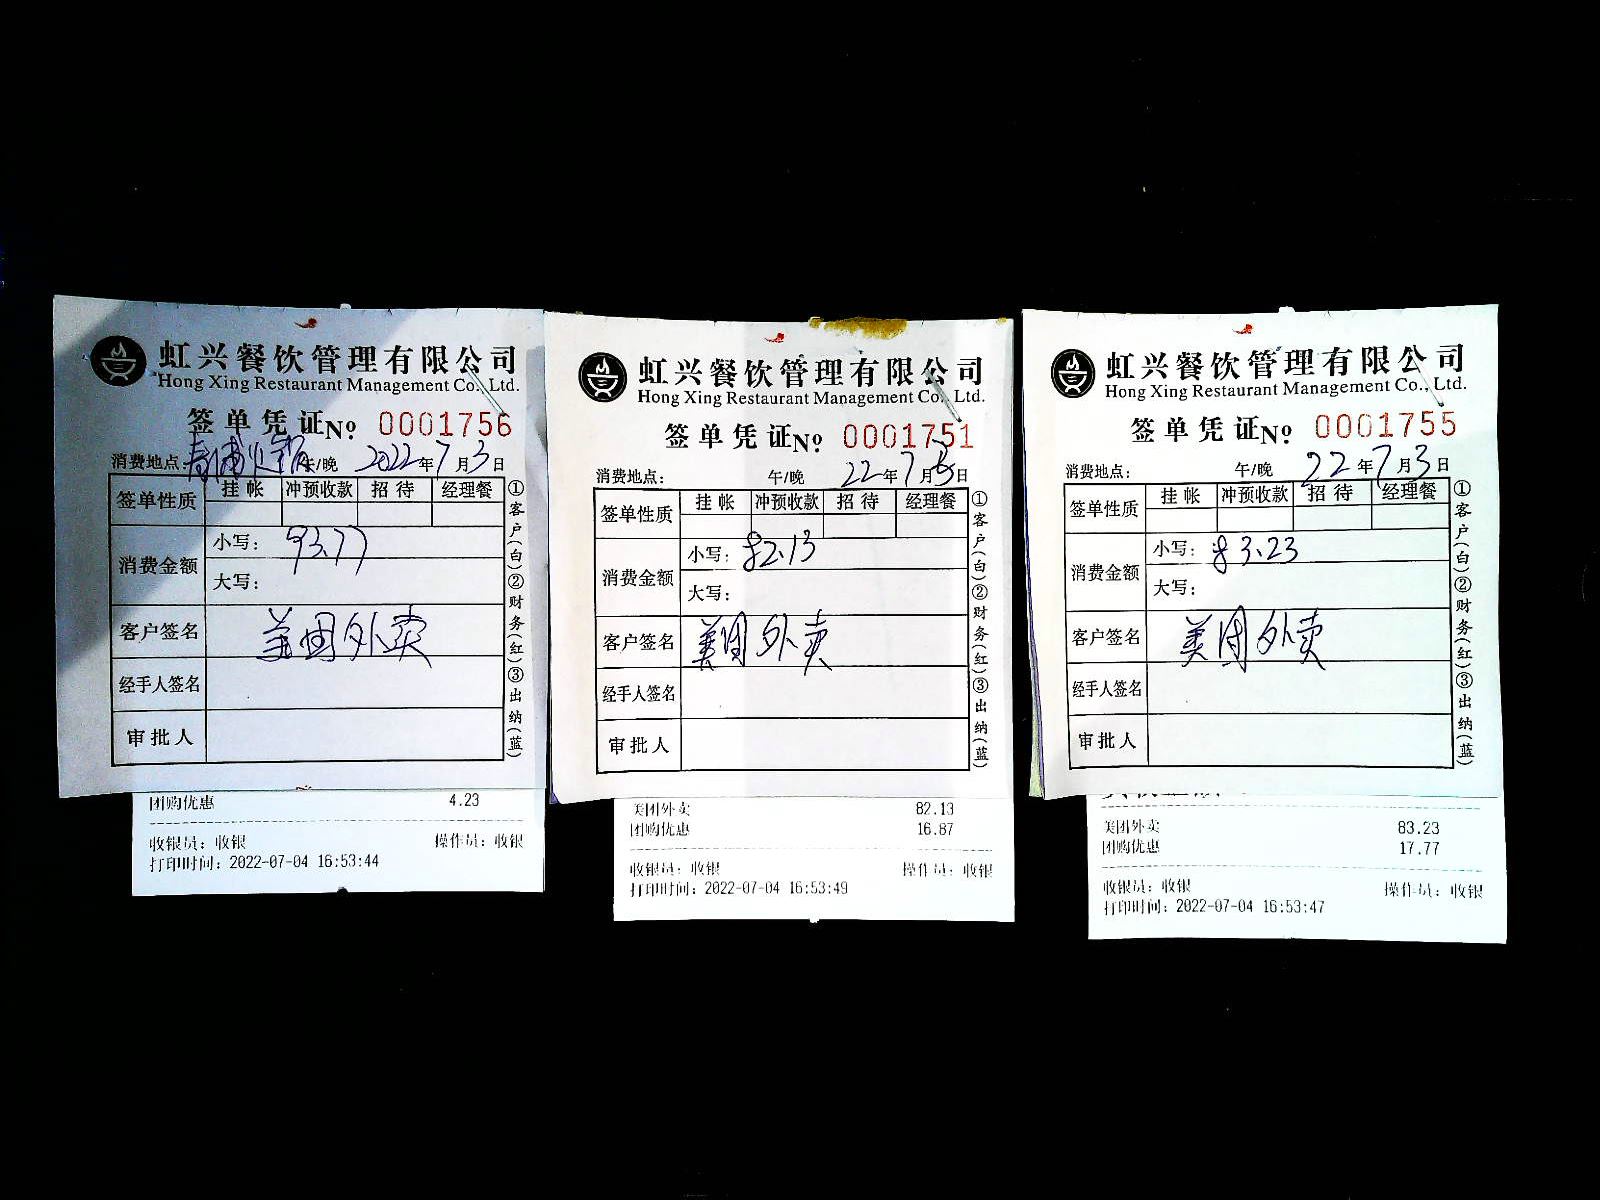 虹兴餐饮管理有限公司
Hong Xing Restaurant Management Co., Ltd.
签单凭证No 0001756
消费地点: 午/晚 2022年7月3日
签单性质 挂帐 冲预收款 招待 经理餐
消费金额 小写: 93.77
大写:
客户签名 美团外卖
经手人签名
审批人
①客户(白)②财务(红)③出纳(蓝)
团购优惠 4.23
收银员: 收银 操作员: 收银
打印时间: 2022-07-04 16:53:44
虹兴餐饮管理有限公司
Hong Xing Restaurant Management Co., Ltd.
签单凭证No 0001751
消费地点: 午/晚 22年7月3日
签单性质 挂帐 冲预收款 招待 经理餐
消费金额 小写: 82.13
大写:
客户签名 美团外卖
经手人签名
审批人
①客户(白)②财务(红)③出纳(蓝)
美团外卖 82.13
团购优惠 16.87
收银员: 收银 操作员: 收银
打印时间: 2022-07-04 16:53:49
虹兴餐饮管理有限公司
Hong Xing Restaurant Management Co., Ltd.
签单凭证No 0001755
消费地点: 午/晚 22年7月3日
签单性质 挂帐 冲预收款 招待 经理餐
消费金额 小写: 83.23
大写:
客户签名 美团外卖
经手人签名
审批人
①客户(白)②财务(红)③出纳(蓝)
美团外卖 83.23
团购优惠 17.77
收银员: 收银 操作员: 收银
打印时间: 2022-07-04 16:53:47